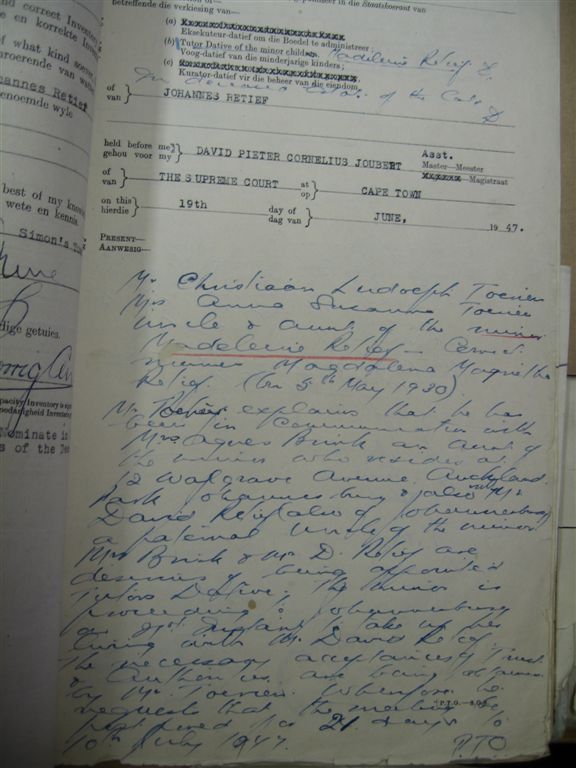 betreffende die verkiesing van—
(a)
Eksekuteur-datief om die Boedel te administreer;
(b) Tutor Dative of the minor children Madeleine Retief &
Voog-datief van die minderjarige kinders;
(c)
Kurator-datief vir die beheer van die eiendom
of the
of
van } JOHANNES RETIEF
held before me
gehou voor my } DAVID PIETER CORNELIUS JOUBERT Asst.
Master—Meester
Magistraat
of
van } THE SUPREME COURT at
op } CAPE TOWN
on this
hierdie } 19th day of
dag van } JUNE, 1947.
PRESENT—
AANWESIG—
Mr Christiaan Ludolph Toerien
Mrs Anna Susanna Toerien
uncle & aunt of the minor
Madeleine Retief — Correct
names Magdalena Magritha
Retief. (born 5th May 1930).
Mr Toerien explains that he has
been in communication with
Mrs Agnes Brink an aunt of
the minor who resides at
12 Walgrave Avenue, Auckland
Park Johannesburg & also with Mr
David Retief also of Johannesburg
a paternal uncle of the minor.
Mrs Brink & Mr D. Retief are
desirous of being appointed
Tutors Dative. The minor is
proceeding to Johannesburg
on instant to take up her
living with Mr. David Retief.
The necessary acceptances of Trust
& are being obtained
by Mr. Toerien. Wherefore he
requests that the meeting be
postponed for 21 days to
10th July 1947.
P.T.O.
P.T.O
nd correct Inventory
e en korrekte Inven
of what kind soever
aroerende van wat
hannes Retief
enoemde wyle
best of my know
wete en kennis.
Simon's To
dige getuies.
apacity Inventory is
oedanigheid Inventor
Nominate in
s of the De